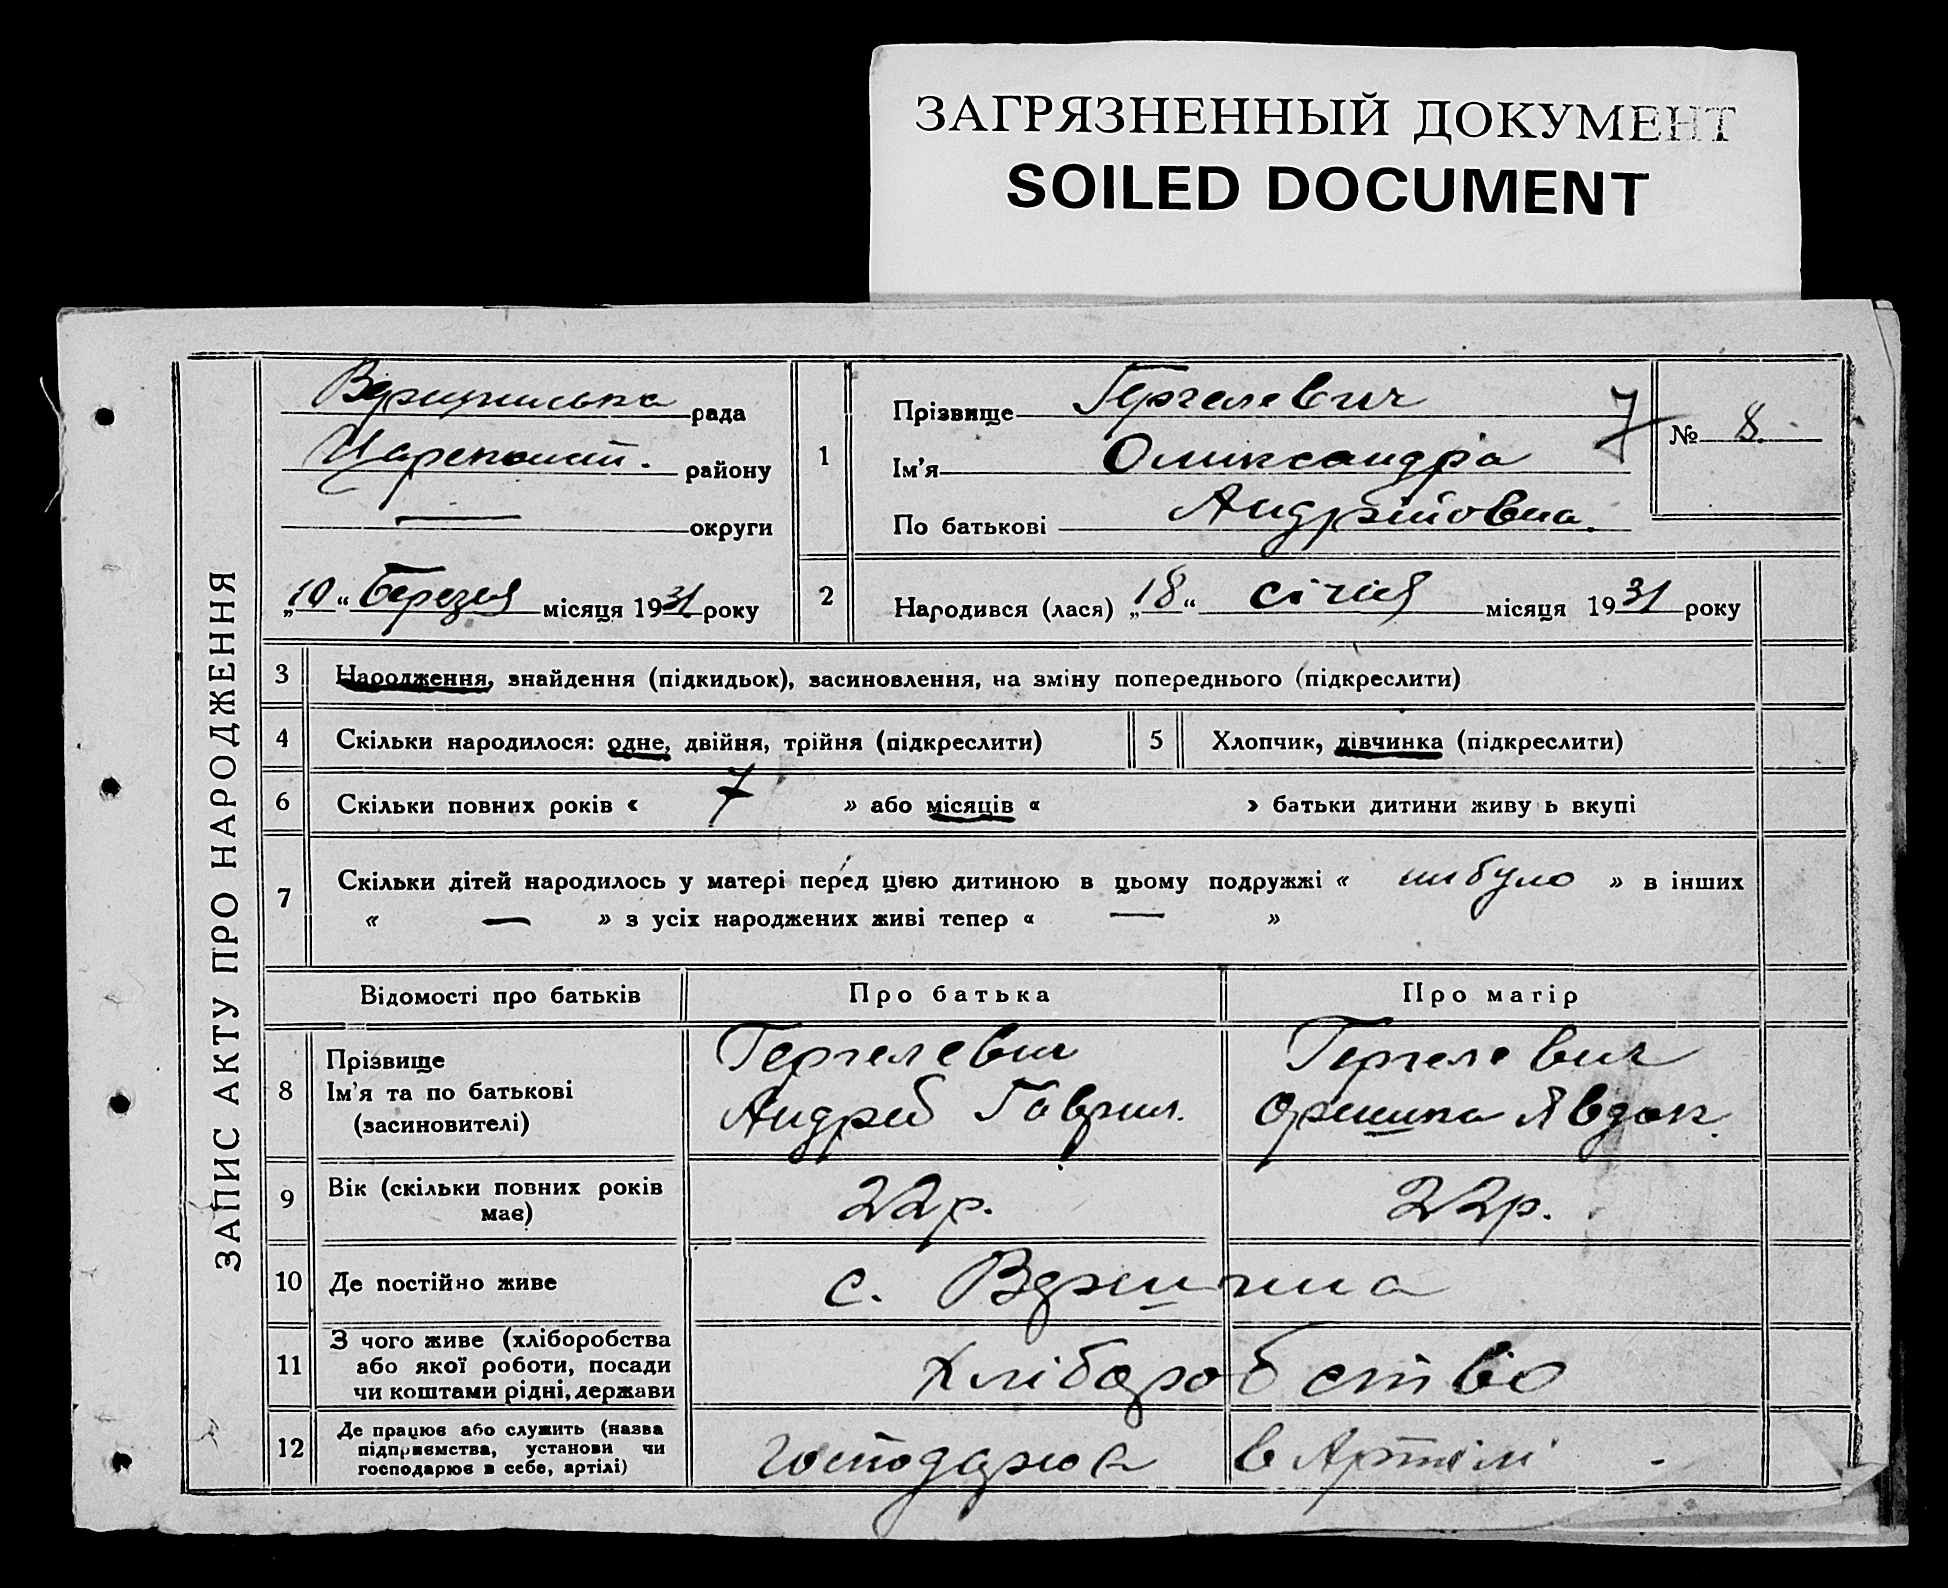 ЗАГРЯЗНЕННЫЙ ДОКУМЕНТ
SOILED DOCUMENT
ЗАПИС АКТУ ПРО НАРОДЖЕННЯ
рада
району
— округи
„10“ березня місяця 1931 року
1 Прізвище Гергелевич
Ім’я Олександра
По батькові Андріївна.
7
№ 8.
2 Народився (лася) „18“ січня місяця 1931 року
3 Народження, знайдення (підкидьок), засиновлення, на зміну попереднього (підкреслити)
4 Скільки народилося: одне, двійня, трійня (підкреслити)
5 Хлопчик, дівчинка (підкреслити)
6 Скільки повних років « 7 » або місяців « » батьки дитини живу ь вкупі
7 Скільки дітей народилось у матері перед цією дитиною в цьому подружжі « нибуло » в інших
« — » з усіх народжених живі тепер « — »
Відомості про батьків Про батька Про матір
8 Прізвище
Ім’я та по батькові
(засиновителі)
Гергелевич
Андрей Гаврил.
Гергелевич
Оришка Явдок.
9 Вік (скільки повних років
має)
22р. 22р.
10 Де постійно живе с. Вершина
11 З чого живе (хліборобства
або якої роботи, посади
чи коштами рідні, держави
Хліборобство
12 Де працює або служить (назва
підприємства, установи чи
господарює в себе, артілі)
в Артілі